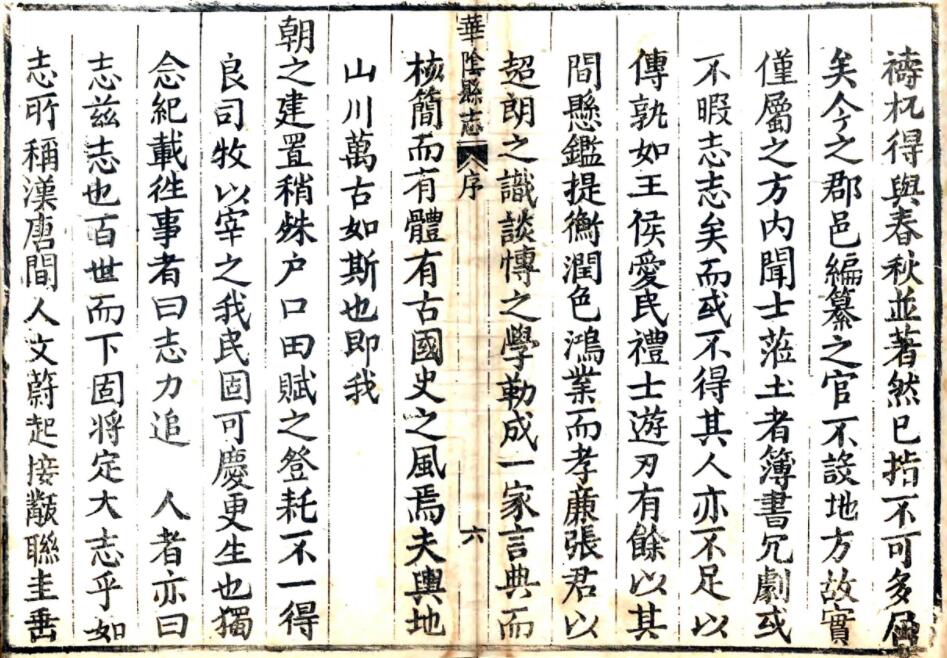 禱杌得與春秋並著然已指不可多屈
矣今之郡邑編纂之官不設地方故實
僅屬之方内聞士蒞土者簿書冗劇或
不暇志志矣而或不得其人亦不足以
傳孰如王侯愛民禮士遊刃有餘以其
間懸鑑提衡潤色鴻業而孝廉張君以
超朗之識談慱之學勒成一家言典而
華陰縣志 序 六
核簡而有體有古國史之風焉夫輿地
山川萬古如斯也即我
朝之建置稍殊户口田賦之登耗不一得
良司牧以宰之我民固可慶更生也獨
念紀載徃事者曰志力追 人者亦曰
志兹志也百世而下固將定大志乎如
志所稱漢唐間人文蔚起接黻聯圭垂